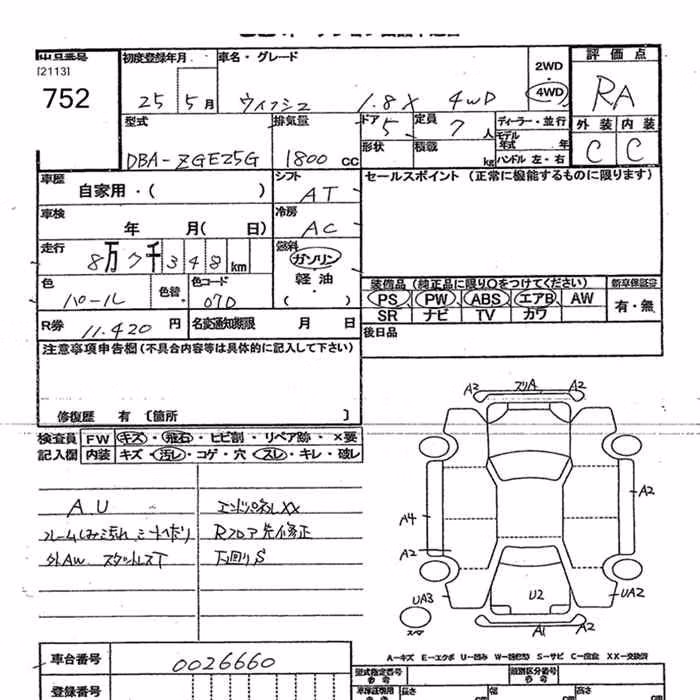 出品番号
[2113]
752
初度登録年月
25 5月
車名・グレード
ウィッシュ 1.8X 4WD
2WD
・
4WD
評価点
RA
型式
DBA-ZGE25G
排気量
1800 cc
ドア 5
定員 7 人
形状
積載 kg
ディーラー・並行
モデル年式 年
ハンドル 左・右
外装 内装
C C
車歴
自家用・( )
シフト
AT
セールスポイント (正常に機能するものに限ります)
車検
年 月( 日)
冷房
AC
走行
8万7千348 km
燃料
ガソリン
軽油
( )
色
パール
色替
色コード
070
装備品 (純正品に限り○をつけてください)
PS PW ABS エアB AW
SR ナビ TV カワ
新車保証書
有・無
R券
11,420 円
名変通知期限 月 日
後日品
注意事項申告欄 (不具合内容等は具体的に記入して下さい)
修復歴 有 〔箇所 〕
検査員記入欄
FW キズ・飛石・ヒビ割・リペア跡・×要
内装 キズ・汚レ・コゲ・穴・スレ・キレ・破レ
AU
エンドパネルXX
フレームしみ汚れ シートヘタリ
Rフロア先修正
外AW スタットレスT
下回りS
A2 スリA A2
A2
A4
A2
UA3
U2
UA2
スペア
A1 A2
A-キズ E-エクボ U-凹み W-補修跡 S-サビ C-腐食 XX-交換済
車台番号
0026660
登録番号
型式指定番号
類別区分番号
長さ
幅
高さ